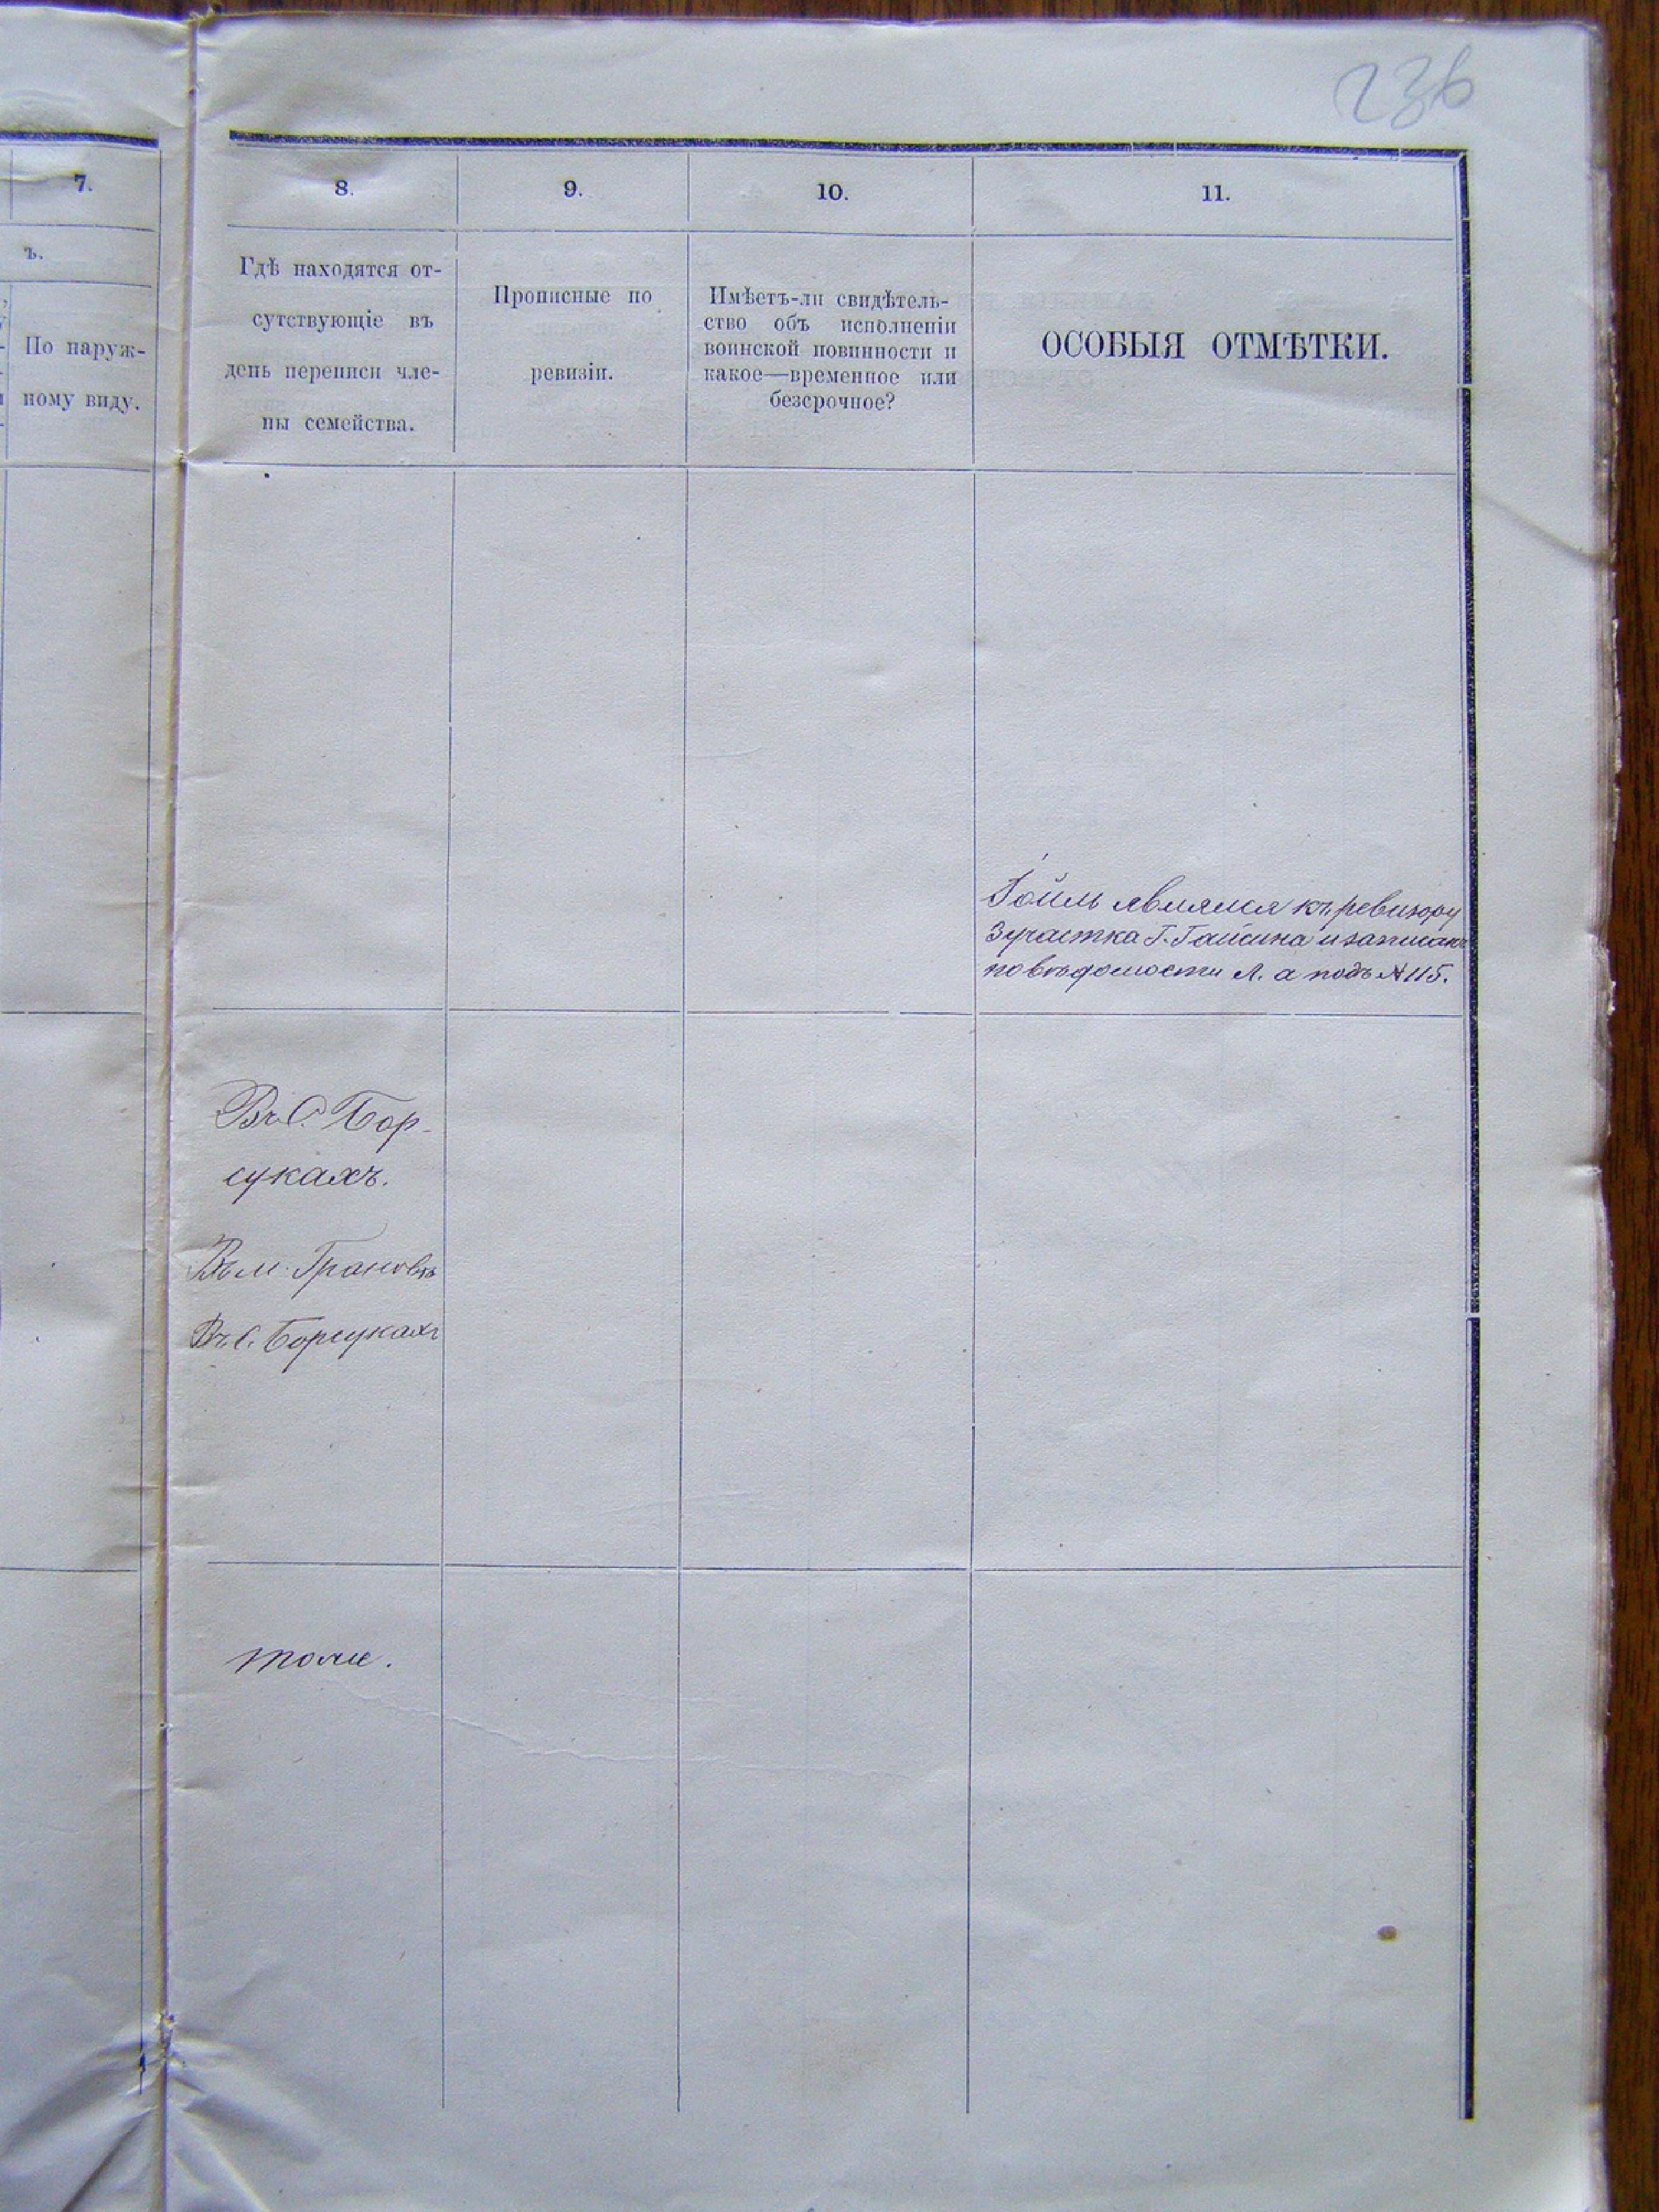 236
7.
8.
9.
10.
11.
ъ.
По наруж-
ному виду.
Гдѣ находятся от-
сутствующіе въ
день переписи чле-
ны семейства.
Прописные по
ревизіи.
Имѣетъ-ли свидѣтель-
ство объ исполненіи
воинской повинности и
какое—временное или
безсрочное?
ОСОБЫЯ ОТМѢТКИ.
Іойль явился къ ревизору
3 участка Г. Гайсина и записанъ
по вѣдомости Л. а подъ № 115.
Въ С. Бор-
сукахъ.
Въ м. Грановѣ
Въ С. Борсукахъ
тоже.